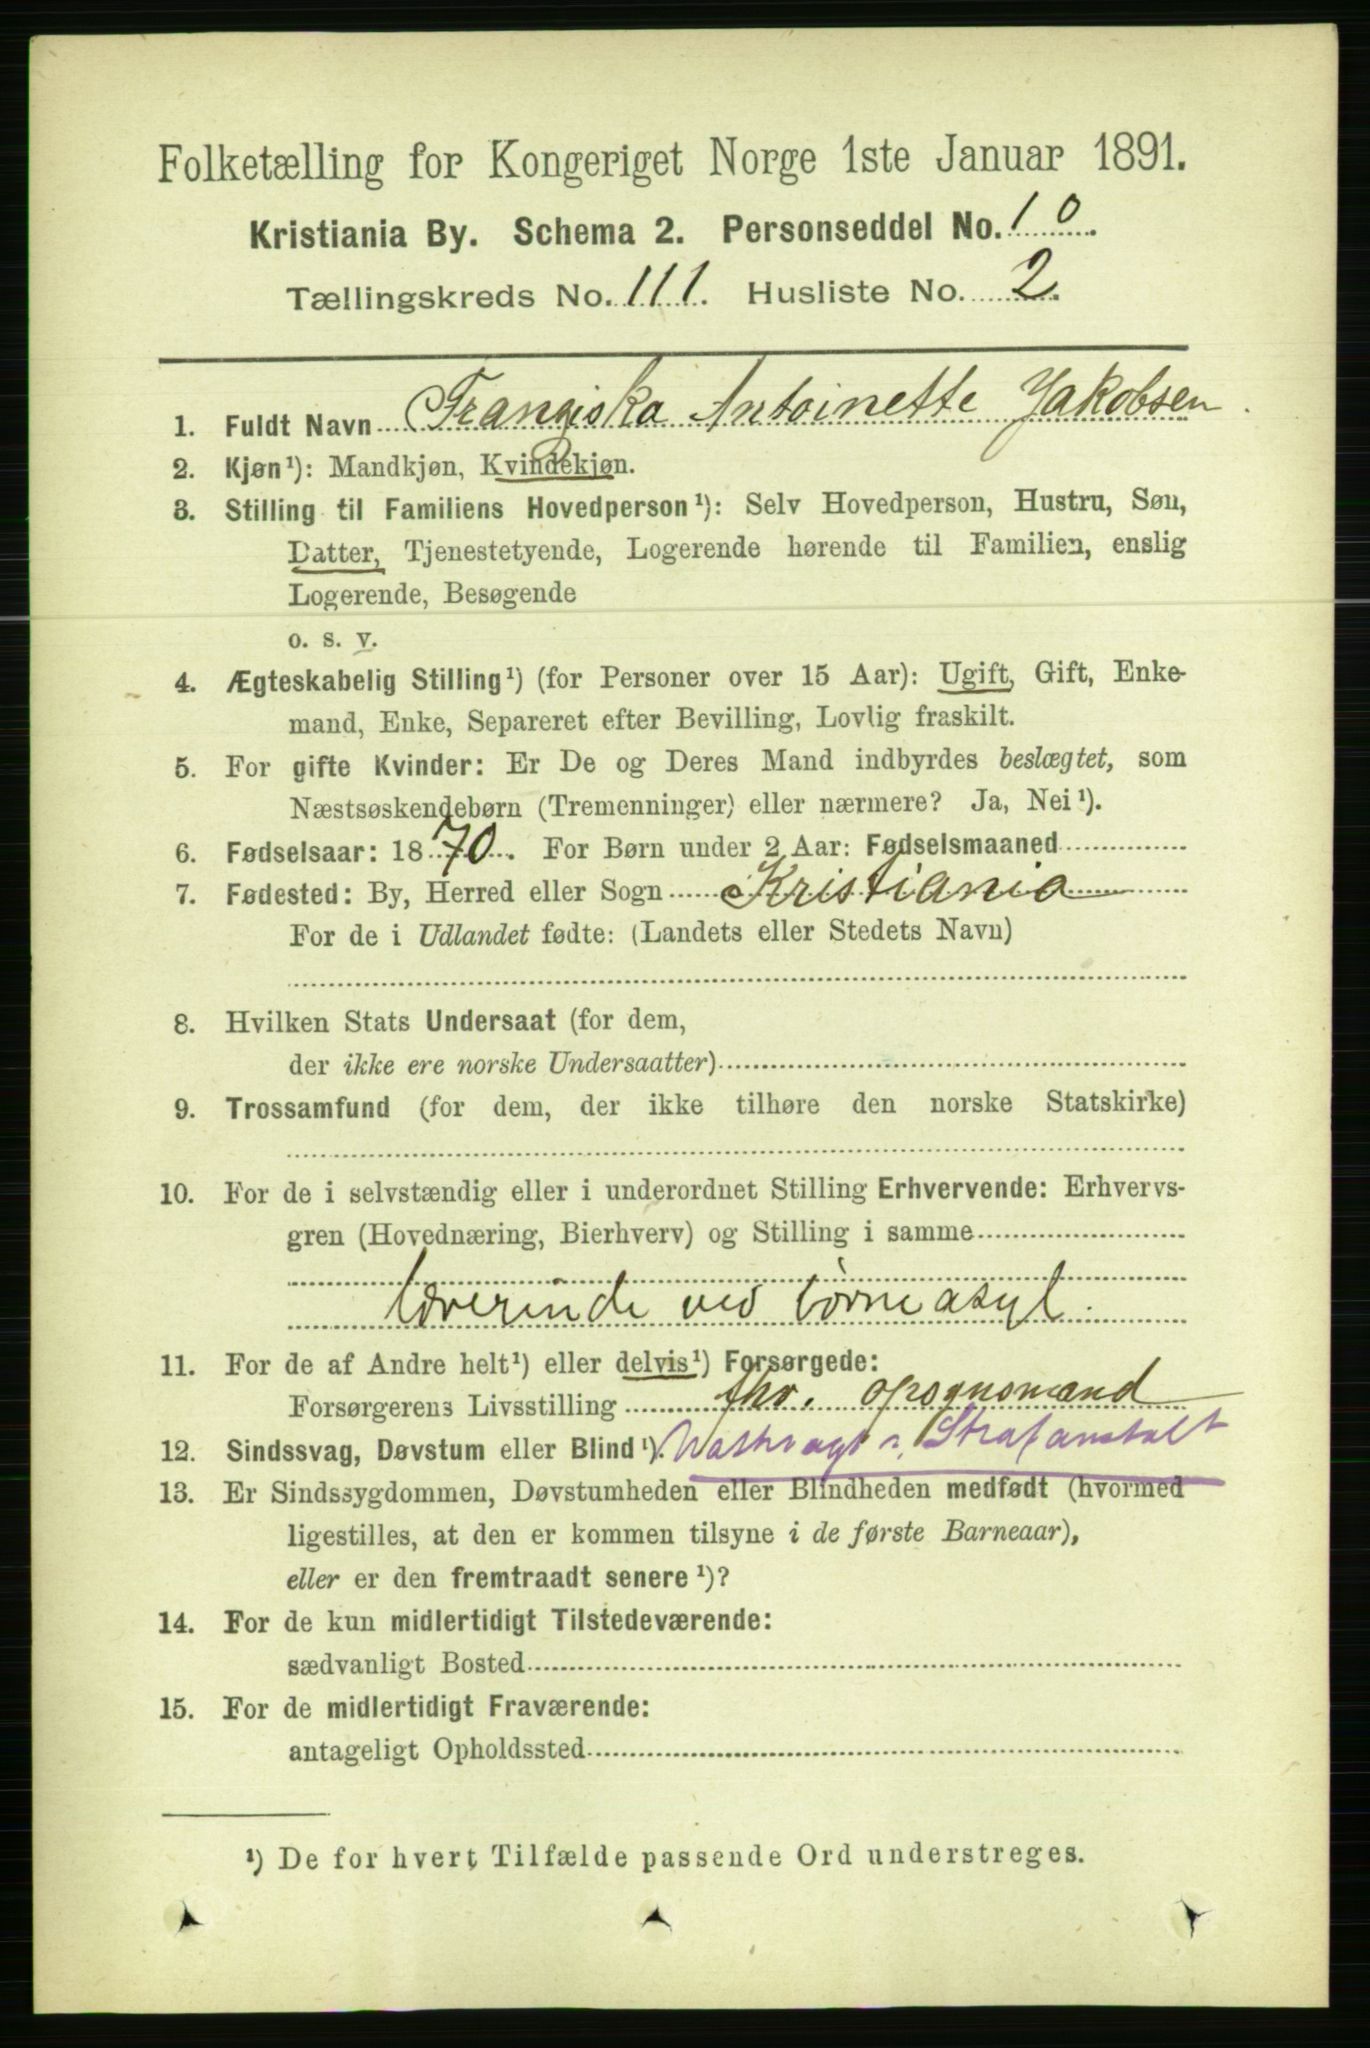 Folketælling for Kongeriget Norge 1ste Januar 1891.
Kristiania By. Schema 2. Personseddel No. 10.
Tællingskreds No. 111. Husliste No. 2.
1. Fuldt Navn Franziska Antoinette Jakobsen.
2. Kjøn¹): Mandkjøn, Kvindekjøn.
3. Stilling til Familiens Hovedperson¹): Selv Hovedperson, Hustru, Søn,
Datter, Tjenestetyende, Logerende hørende til Familien, enslig
Logerende, Besøgende
o. s. v.
4. Ægteskabelig Stilling¹) (for Personer over 15 Aar): Ugift, Gift, Enke-
mand, Enke, Separeret efter Bevilling, Lovlig fraskilt.
5. For gifte Kvinder: Er De og Deres Mand indbyrdes beslægtet, som
Næstsøskendebørn (Tremenninger) eller nærmere? Ja, Nei¹).
6. Fødselsaar: 1870. For Børn under 2 Aar: Fødselsmaaned
7. Fødested: By, Herred eller Sogn Kristiania
For de i Udlandet fødte: (Landets eller Stedets Navn)
8. Hvilken Stats Undersaat (for dem,
der ikke ere norske Undersaatter)
9. Trossamfund (for dem, der ikke tilhøre den norske Statskirke)
10. For de i selvstændig eller i underordnet Stilling Erhvervende: Erhvervs-
gren (Hovednæring, Bierhverv) og Stilling i samme
lærerinde ved børneasyl.
11. For de af Andre helt¹) eller delvis¹) Forsørgede:
Forsørgerens Livsstilling fhv. opsynsmand
12. Sindssvag, Døvstum eller Blind¹). Strafanstalt
13. Er Sindssygdommen, Døvstumheden eller Blindheden medfødt (hvormed
ligestilles, at den er kommen tilsyne i de første Barneaar),
eller er den fremtraadt senere¹)?
14. For de kun midlertidigt Tilstedeværende:
sædvanligt Bosted
15. For de midlertidigt Fraværende:
antageligt Opholdssted
¹) De for hvert Tilfælde passende Ord understreges.